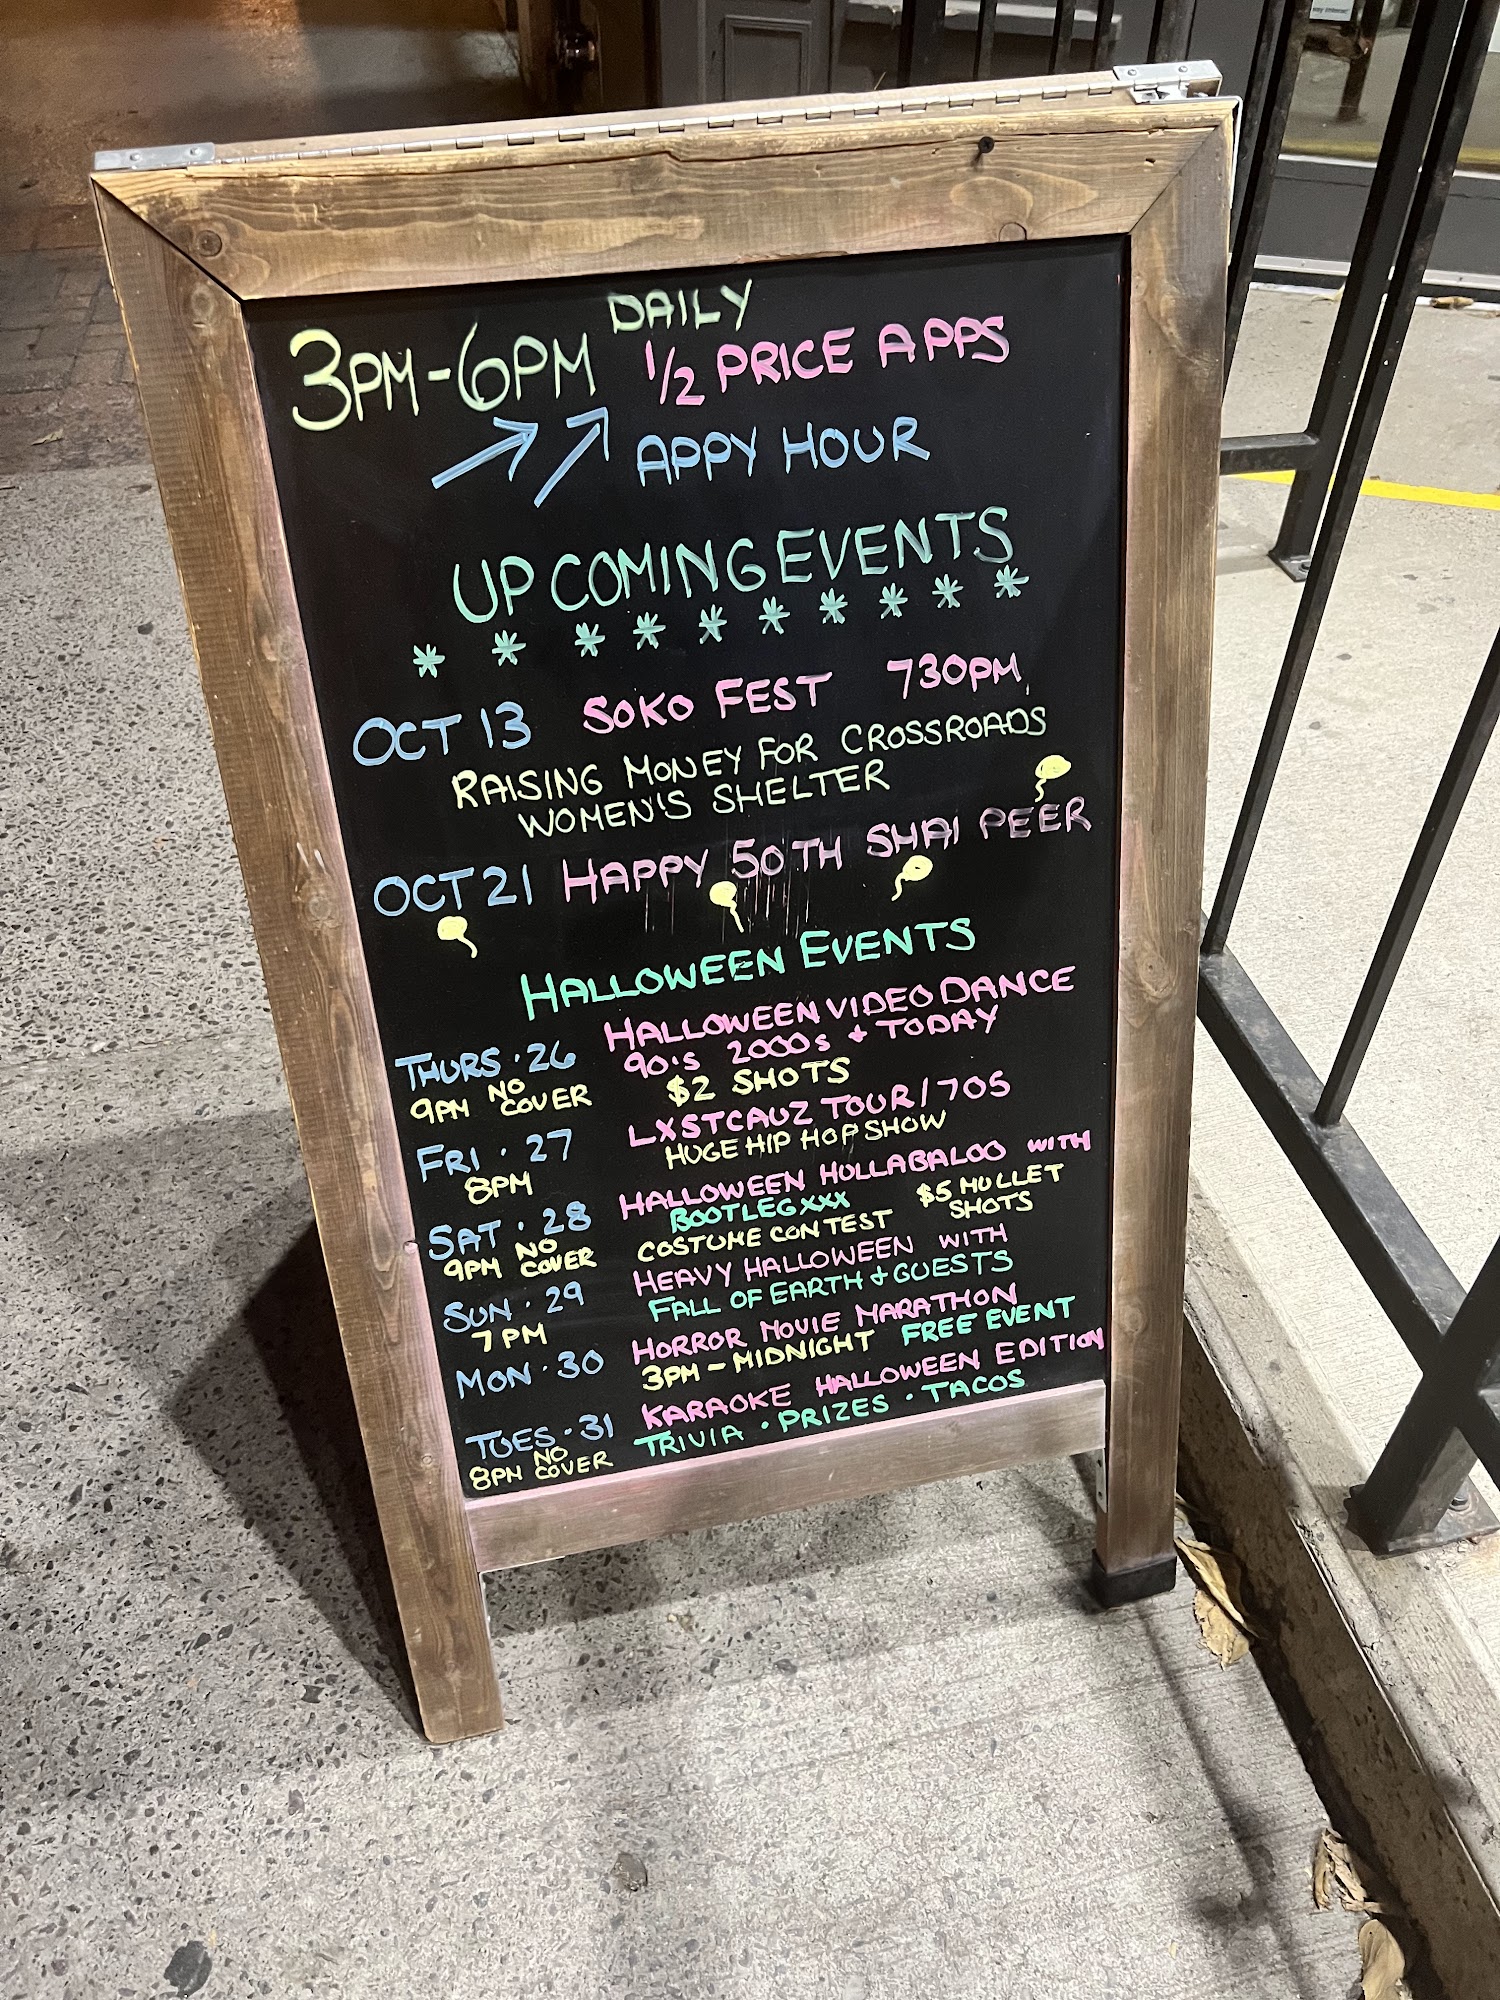 DAILY
3PM-6PM 1/2 PRICE APPS
APPY HOUR
UPCOMING EVENTS
* * * * * * * * * *
OCT 13 SOKO FEST 730PM
RAISING MONEY FOR CROSSROADS
WOMEN'S SHELTER
OCT 21 HAPPY 50TH SHAI PEER
HALLOWEEN EVENTS
THURS · 26 HALLOWEEN VIDEO DANCE
90's 2000s + TODAY
9PM NO COVER $2 SHOTS
FRI · 27 LXSTCAUZ TOUR/70S
8PM HUGE HIP HOP SHOW
SAT · 28 HALLOWEEN HULLABALOO WITH
BOOTLEGXXX $5 MULLET
9PM NO COVER COSTUME CONTEST SHOTS
SUN · 29 HEAVY HALLOWEEN WITH
7PM FALL OF EARTH + GUESTS
MON · 30 HORROR MOVIE MARATHON
3PM - MIDNIGHT FREE EVENT
TUES · 31 KARAOKE HALLOWEEN EDITION
8PM NO COVER TRIVIA · PRIZES · TACOS